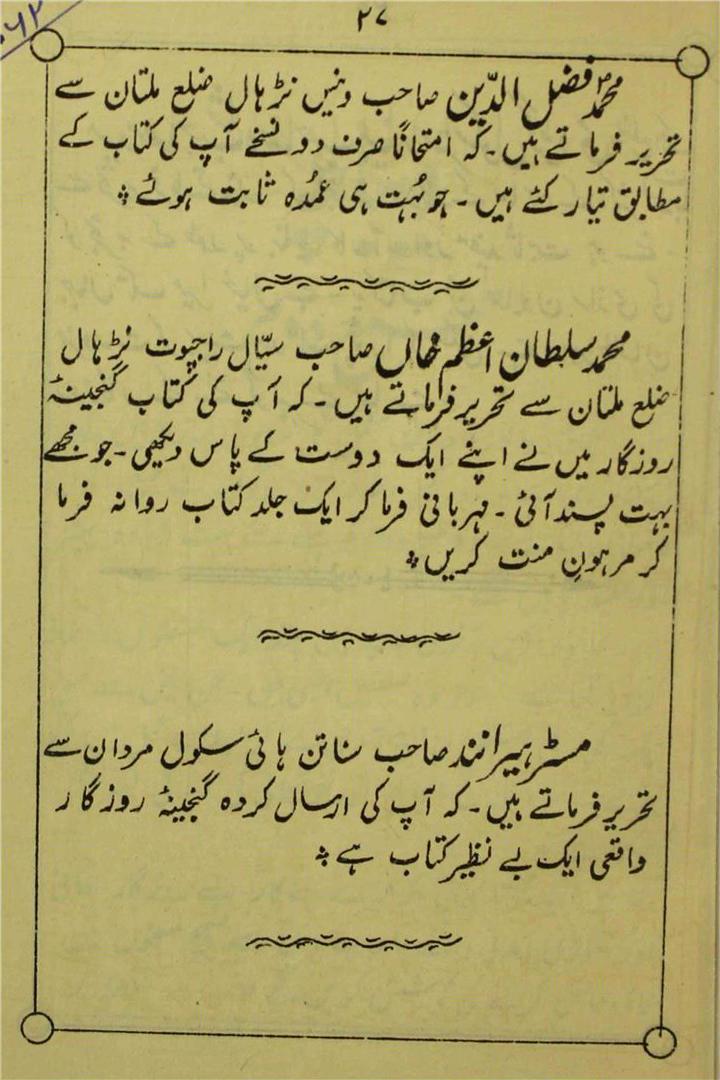 ۲۷
محمد فضل الدّین صاحب ونیس نڑہال ضلع ملتان سے
تحریر فرماتے ہیں۔ کہ امتحاناً صرف دو نسخے آپ کی کتاب کے
مطابق تیار کئے ہیں۔ جو بُہت ہی عمُدہ ثابت ہوئے
محمد سلطان اعظم خاں صاحب سیّال راجپوت نڑہال
ضلع ملتان سے تحریر فرماتے ہیں۔ کہ آپ کی کتاب گنجینۂ
روزگار میں نے اپنے ایک دوست کے پاس دیکھی۔ جو مجھے
بہت پسند آئی۔ مہربانی فرما کر ایک جلد کتاب روانہ فرما
کر مرہونِ منت کریں
مسٹر ہیرانند صاحب سناتن ہائی سکول مردان سے
تحریر فرماتے ہیں۔ کہ آپ کی ارسال کردہ گنجینۂ روزگار
واقعی ایک بے نظیر کتاب ہے